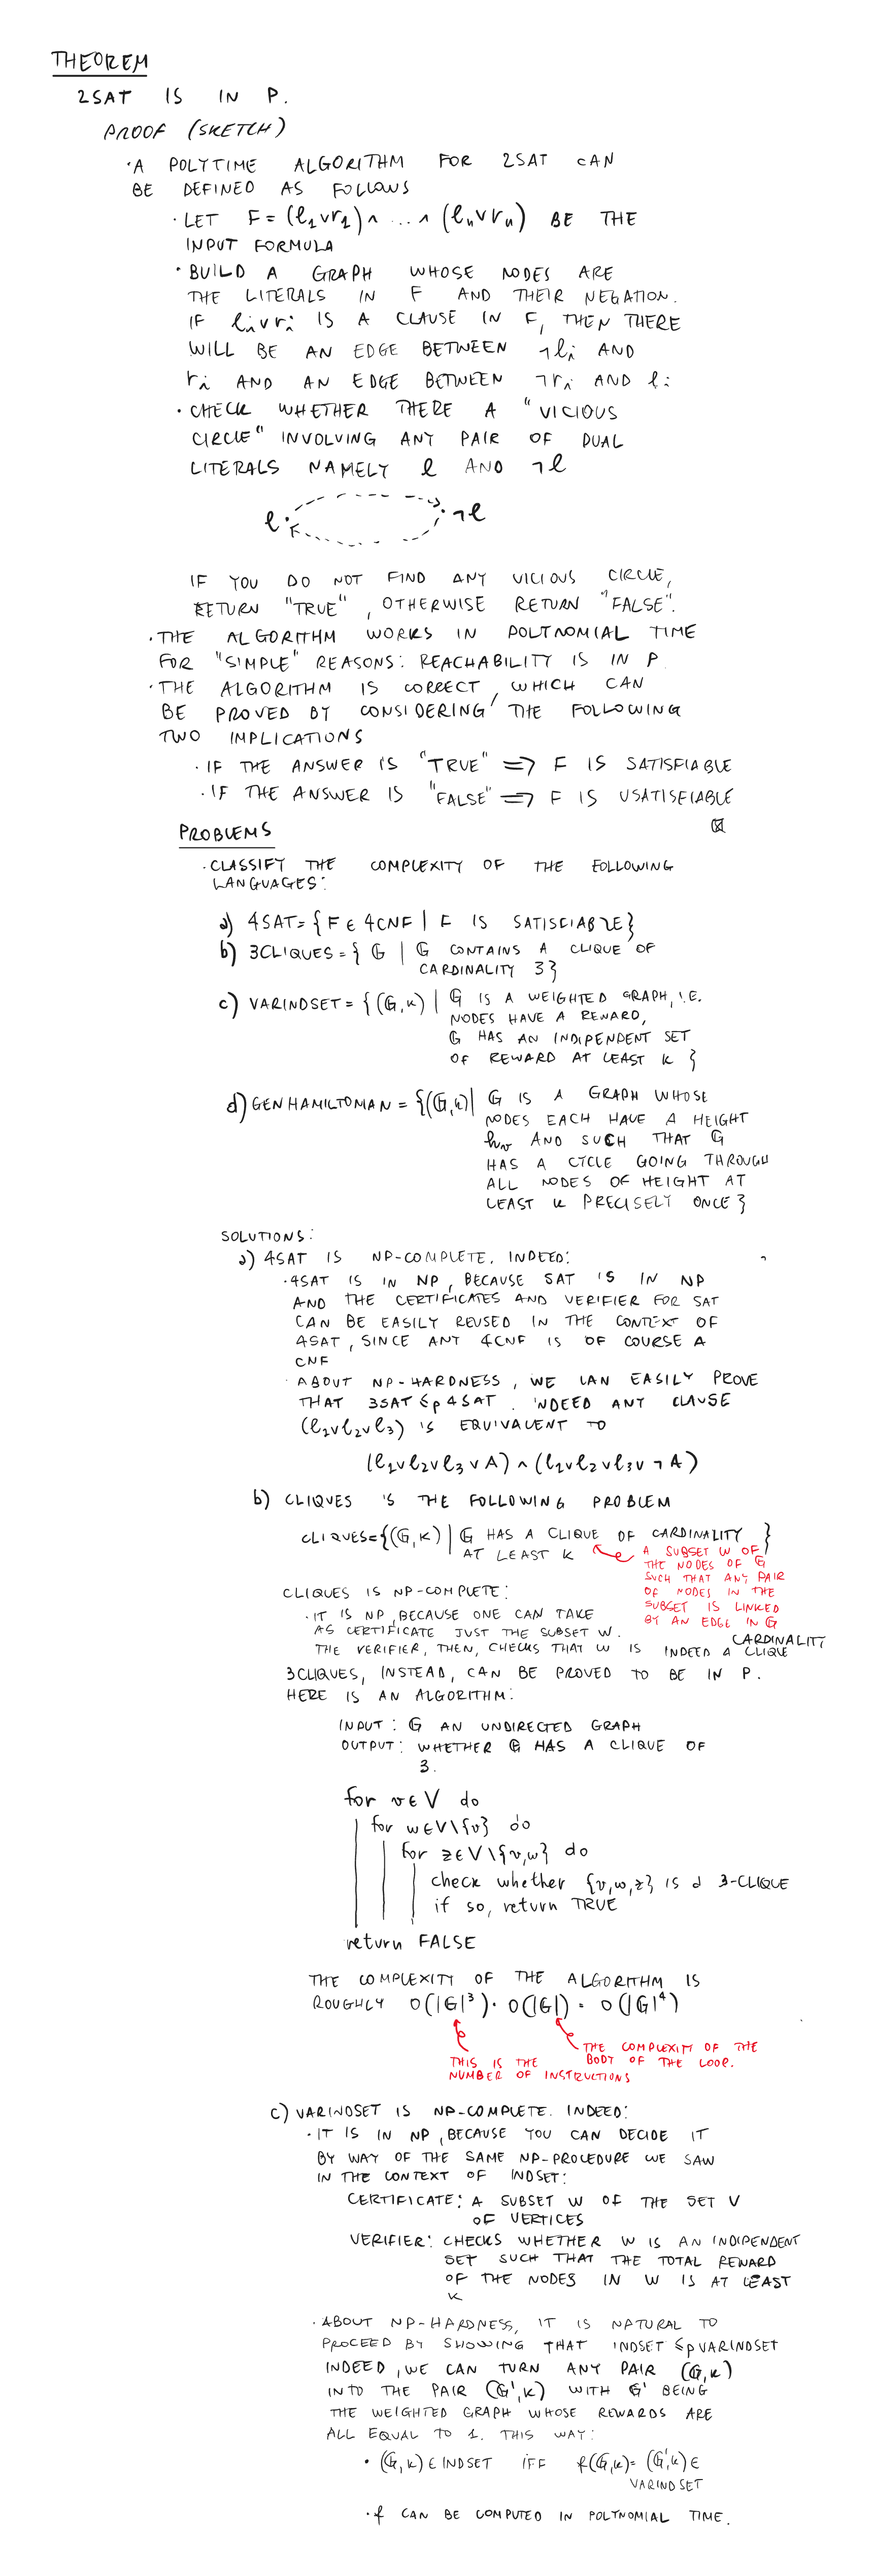 THEOREM
2SAT IS IN P.
PROOF (SKETCH)
·A POLYTIME ALGORITHM FOR 2SAT CAN
BE DEFINED AS FOLLOWS
· LET F = (ℓ₁∨r₁) ∧ ... ∧ (ℓₙ∨rₙ) BE THE
INPUT FORMULA
· BUILD A GRAPH WHOSE NODES ARE
THE LITERALS IN F AND THEIR NEGATION.
IF ℓᵢ∨rᵢ IS A CLAUSE IN F, THEN THERE
WILL BE AN EDGE BETWEEN ¬ℓᵢ AND
rᵢ AND AN EDGE BETWEEN ¬rᵢ AND ℓᵢ
· CHECK WHETHER THERE A "VICIOUS
CIRCLE" INVOLVING ANY PAIR OF DUAL
LITERALS NAMELY ℓ AND ¬ℓ
ℓ ¬ℓ
IF YOU DO NOT FIND ANY VICIOUS CIRCLE,
RETURN "TRUE", OTHERWISE RETURN "FALSE".
· THE ALGORITHM WORKS IN POLYNOMIAL TIME
FOR "SIMPLE" REASONS: REACHABILITY IS IN P
· THE ALGORITHM IS CORRECT, WHICH CAN
BE PROVED BY CONSIDERING THE FOLLOWING
TWO IMPLICATIONS
· IF THE ANSWER IS "TRUE" ⇒ F IS SATISFIABLE
· IF THE ANSWER IS "FALSE" ⇒ F IS USATISFIABLE
PROBLEMS
· CLASSIFY THE COMPLEXITY OF THE FOLLOWING
LANGUAGES:
a) 4SAT = {F ∈ 4CNF | F IS SATISFIABLE}
b) 3CLIQUES = { G | G CONTAINS A CLIQUE OF
CARDINALITY 3}
c) VARINDSET = {(G,k) | G IS A WEIGHTED GRAPH, I.E.
NODES HAVE A REWARD,
G HAS AN INDIPENDENT SET
OF REWARD AT LEAST K }
d) GENHAMILTONIAN = {(G,k) | G IS A GRAPH WHOSE
NODES EACH HAVE A HEIGHT
hᵥ AND SUCH THAT G
HAS A CYCLE GOING THROUGH
ALL NODES OF HEIGHT AT
LEAST K PRECISELY ONCE}
SOLUTIONS:
a) 4SAT IS NP-COMPLETE. INDEED:
· 4SAT IS IN NP, BECAUSE SAT IS IN NP
AND THE CERTIFICATES AND VERIFIER FOR SAT
CAN BE EASILY REUSED IN THE CONTEXT OF
4SAT, SINCE ANY 4CNF IS OF COURSE A
CNF
· ABOUT NP-HARDNESS, WE CAN EASILY PROVE
THAT 3SAT ≤p 4SAT. INDEED ANY CLAUSE
(ℓ₁∨ℓ₂∨ℓ₃) IS EQUIVALENT TO
(ℓ₁∨ℓ₂∨ℓ₃∨A) ∧ (ℓ₁∨ℓ₂∨ℓ₃∨¬A)
b) CLIQUES IS THE FOLLOWING PROBLEM
CLIQUES = {(G,K) | G HAS A CLIQUE OF CARDINALITY }
AT LEAST K
A SUBSET W OF
THE NODES OF G
SUCH THAT ANY PAIR
OF NODES IN THE
SUBSET IS LINKED
BY AN EDGE IN G
CLIQUES IS NP-COMPLETE:
· IT IS NP, BECAUSE ONE CAN TAKE
AS CERTIFICATE JUST THE SUBSET W.
CARDINALITY
THE VERIFIER, THEN, CHECKS THAT W IS INDEED A CLIQUE
3CLIQUES, INSTEAD, CAN BE PROVED TO BE IN P.
HERE IS AN ALGORITHM:
INPUT: G AN UNDIRECTED GRAPH
OUTPUT: WHETHER G HAS A CLIQUE OF
3.
for v∈V do
for w∈V\{v} do
for z∈V\{v,w} do
check whether {v,w,z} is a 3-CLIQUE
if so, return TRUE
return FALSE
THE COMPLEXITY OF THE ALGORITHM IS
ROUGHLY O(|G|³)·O(|G|) = O(|G|⁴)
THE COMPLEXITY OF THE
BODY OF THE LOOP.
THIS IS THE
NUMBER OF INSTRUCTIONS
c) VARINDSET IS NP-COMPLETE. INDEED:
· IT IS IN NP, BECAUSE YOU CAN DECIDE IT
BY WAY OF THE SAME NP-PROCEDURE WE SAW
IN THE CONTEXT OF INDSET:
CERTIFICATE: A SUBSET W OF THE SET V
OF VERTICES
VERIFIER: CHECKS WHETHER W IS AN INDIPENDENT
SET SUCH THAT THE TOTAL REWARD
OF THE NODES IN W IS AT LEAST
K
· ABOUT NP-HARDNESS, IT IS NATURAL TO
PROCEED BY SHOWING THAT INDSET ≤p VARINDSET
INDEED, WE CAN TURN ANY PAIR (G,k)
INTO THE PAIR (G',k) WITH G' BEING
THE WEIGHTED GRAPH WHOSE REWARDS ARE
ALL EQUAL TO 1. THIS WAY:
· (G,k) ∈ INDSET IFF f(G,k) = (G',k) ∈
VARINDSET
· f CAN BE COMPUTED IN POLYNOMIAL TIME.